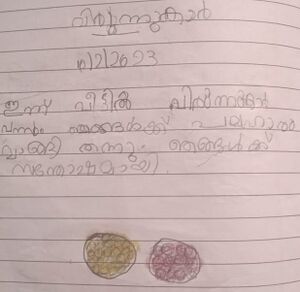 വിരുന്നുകാർ
11/2/2023
ഇന്ന് വീട്ടിൽ വിരുന്നുകാർ
വന്നു ഞങ്ങൾക്ക് പലഹാരം
വാങ്ങി തന്നു. ഞങ്ങൾക്ക്
സന്തോഷമായി.